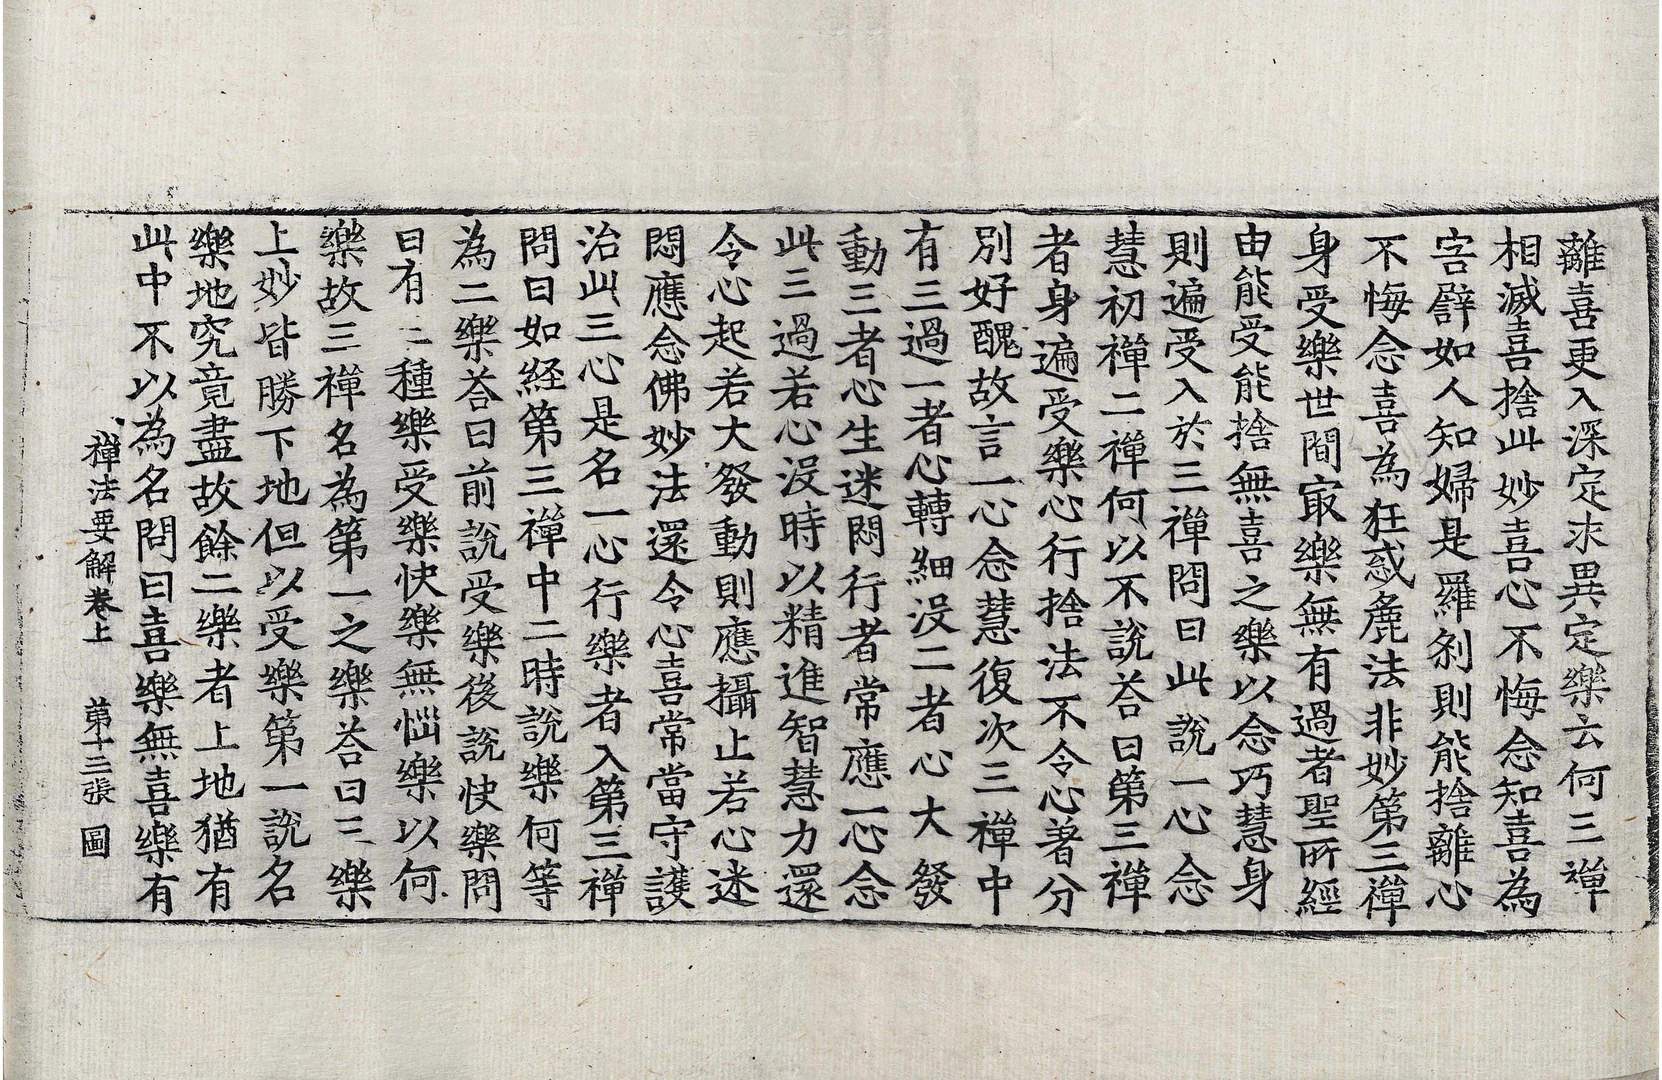 離喜更入深定求異定樂云何三禪
相滅喜捨此妙喜心不悔念知喜為
害譬如人知婦是羅剎則能捨離心
不悔念喜為狂惑麁法非妙第三禪
身受樂世間㝡樂無有過者聖所經
由能受能捨無喜之樂以念巧慧身
則遍受入於三禪問曰此說一心念
慧初禪二禪何以不說荅曰第三禪
者身遍受樂心行捨法不令心著分
別好醜故言一心念慧復次三禪中
有三過一者心轉細没二者心大發
動三者心生迷悶行者常應一心念
此三過若心没時以精進智慧力還
令心起若大發動則應攝止若心迷
悶應念佛妙法還令心喜常當守護
治此三心是名一心行樂者入第三禪
問曰如経第三禪中二時說樂何等
為二樂荅曰前說受樂後說快樂問
曰有三種樂受樂快樂無惱樂以何
樂故三禪名為第一之樂荅曰三樂
上妙皆勝下地但以受樂第一說名
樂地究竟盡故餘二樂者上地猶有
此中不以為名問曰喜樂無喜樂有
禪法要解卷上 第十三張 圖